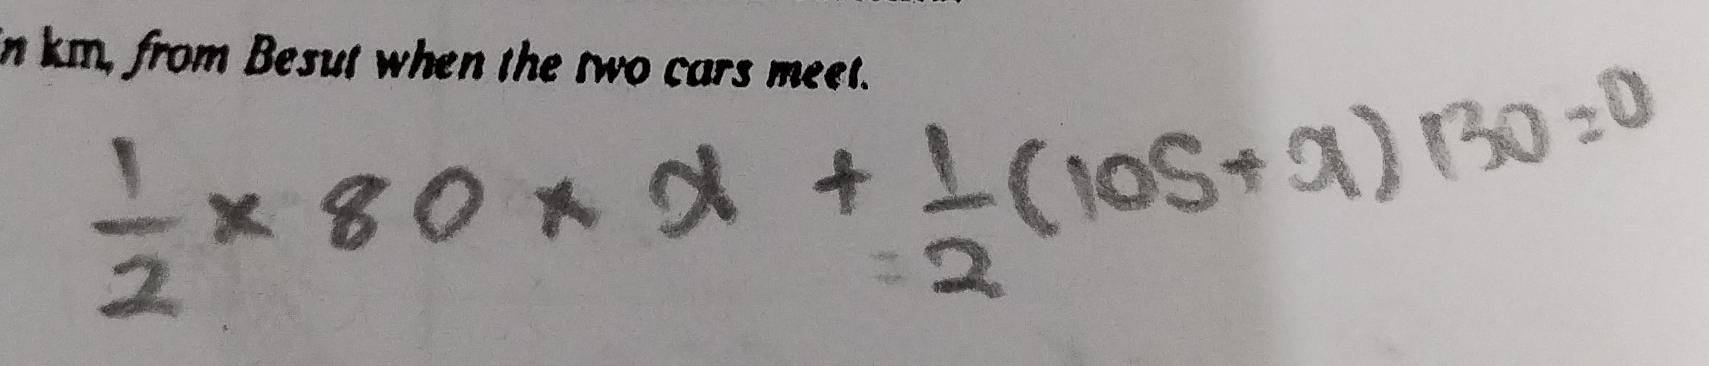 in km, from Besut when the two cars meet.
1/2 × 80 × x + 1/2 (105+x) 130 = 0